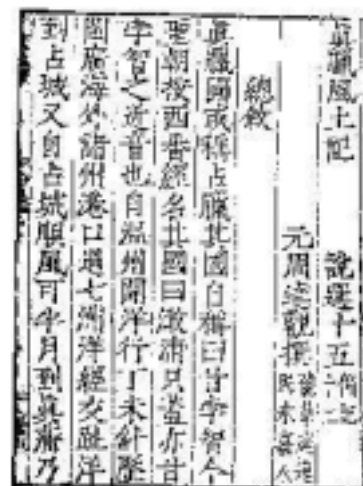 真臘風土記 說選十五
元周達觀撰 號草庭逸民永嘉人
總敘
真臘國或稱占臘其國自稱曰甘孛智今
聖朝按西番經名其國曰澉浦只蓋亦甘
孛智之近音也自溫州開洋行丁未針歷
閩廣海外諸州港口過七洲洋經交趾洋
到占城又自占城順風可半月到真蒲乃